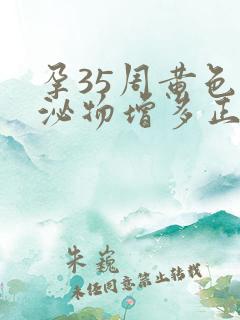 孕35周黄色
泌物增多正
朱巍
未经同意禁止转载